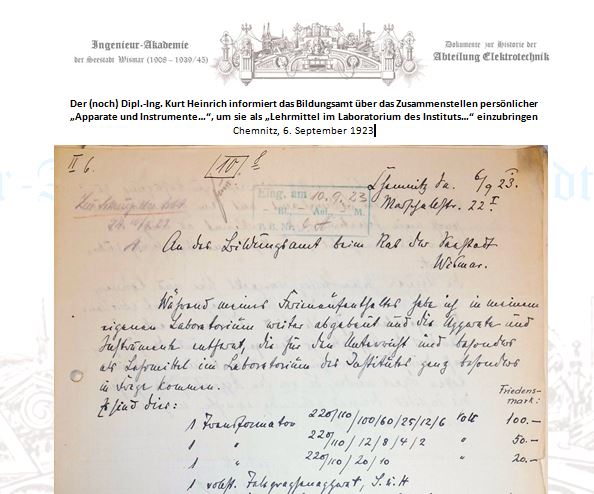 Ingenieur-Akademie
der Seestadt Wismar (1908 – 1939/45)
Dokumente zur Historie der
Abteilung Elektrotechnik
Der (noch) Dipl.-Ing. Kurt Heinrich informiert das Bildungsamt über das Zusammenstellen persönlicher
„Apparate und Instrumente…“, um sie als „Lehrmittel im Laboratorium des Instituts…“ einzubringen
Chemnitz, 6. September 1923
II 6.
10
Chemnitz, den 6/9 23.
Eing. am 10.9.23
22 I
An das Bildungsamt beim Rat der Seestadt
Wismar.
Während meines Ferienaufenthaltes habe ich in meinem
eigenen Laboratorium weiter abgebaut und die Apparate und
Instrumente entfernt, die für den Unterricht und besonders
als Lehrmittel im Laboratorium des Instituts ganz besonders
in Frage kommen.
Es sind dies:
Friedens-
mark:
1 Transformator 220/110/100/60/25/12/6 Volt 100.–
1 " 220/110/12/8/4/2 " 50.–
1 " 220/110/20/10 " 20.–
1 S. u. H